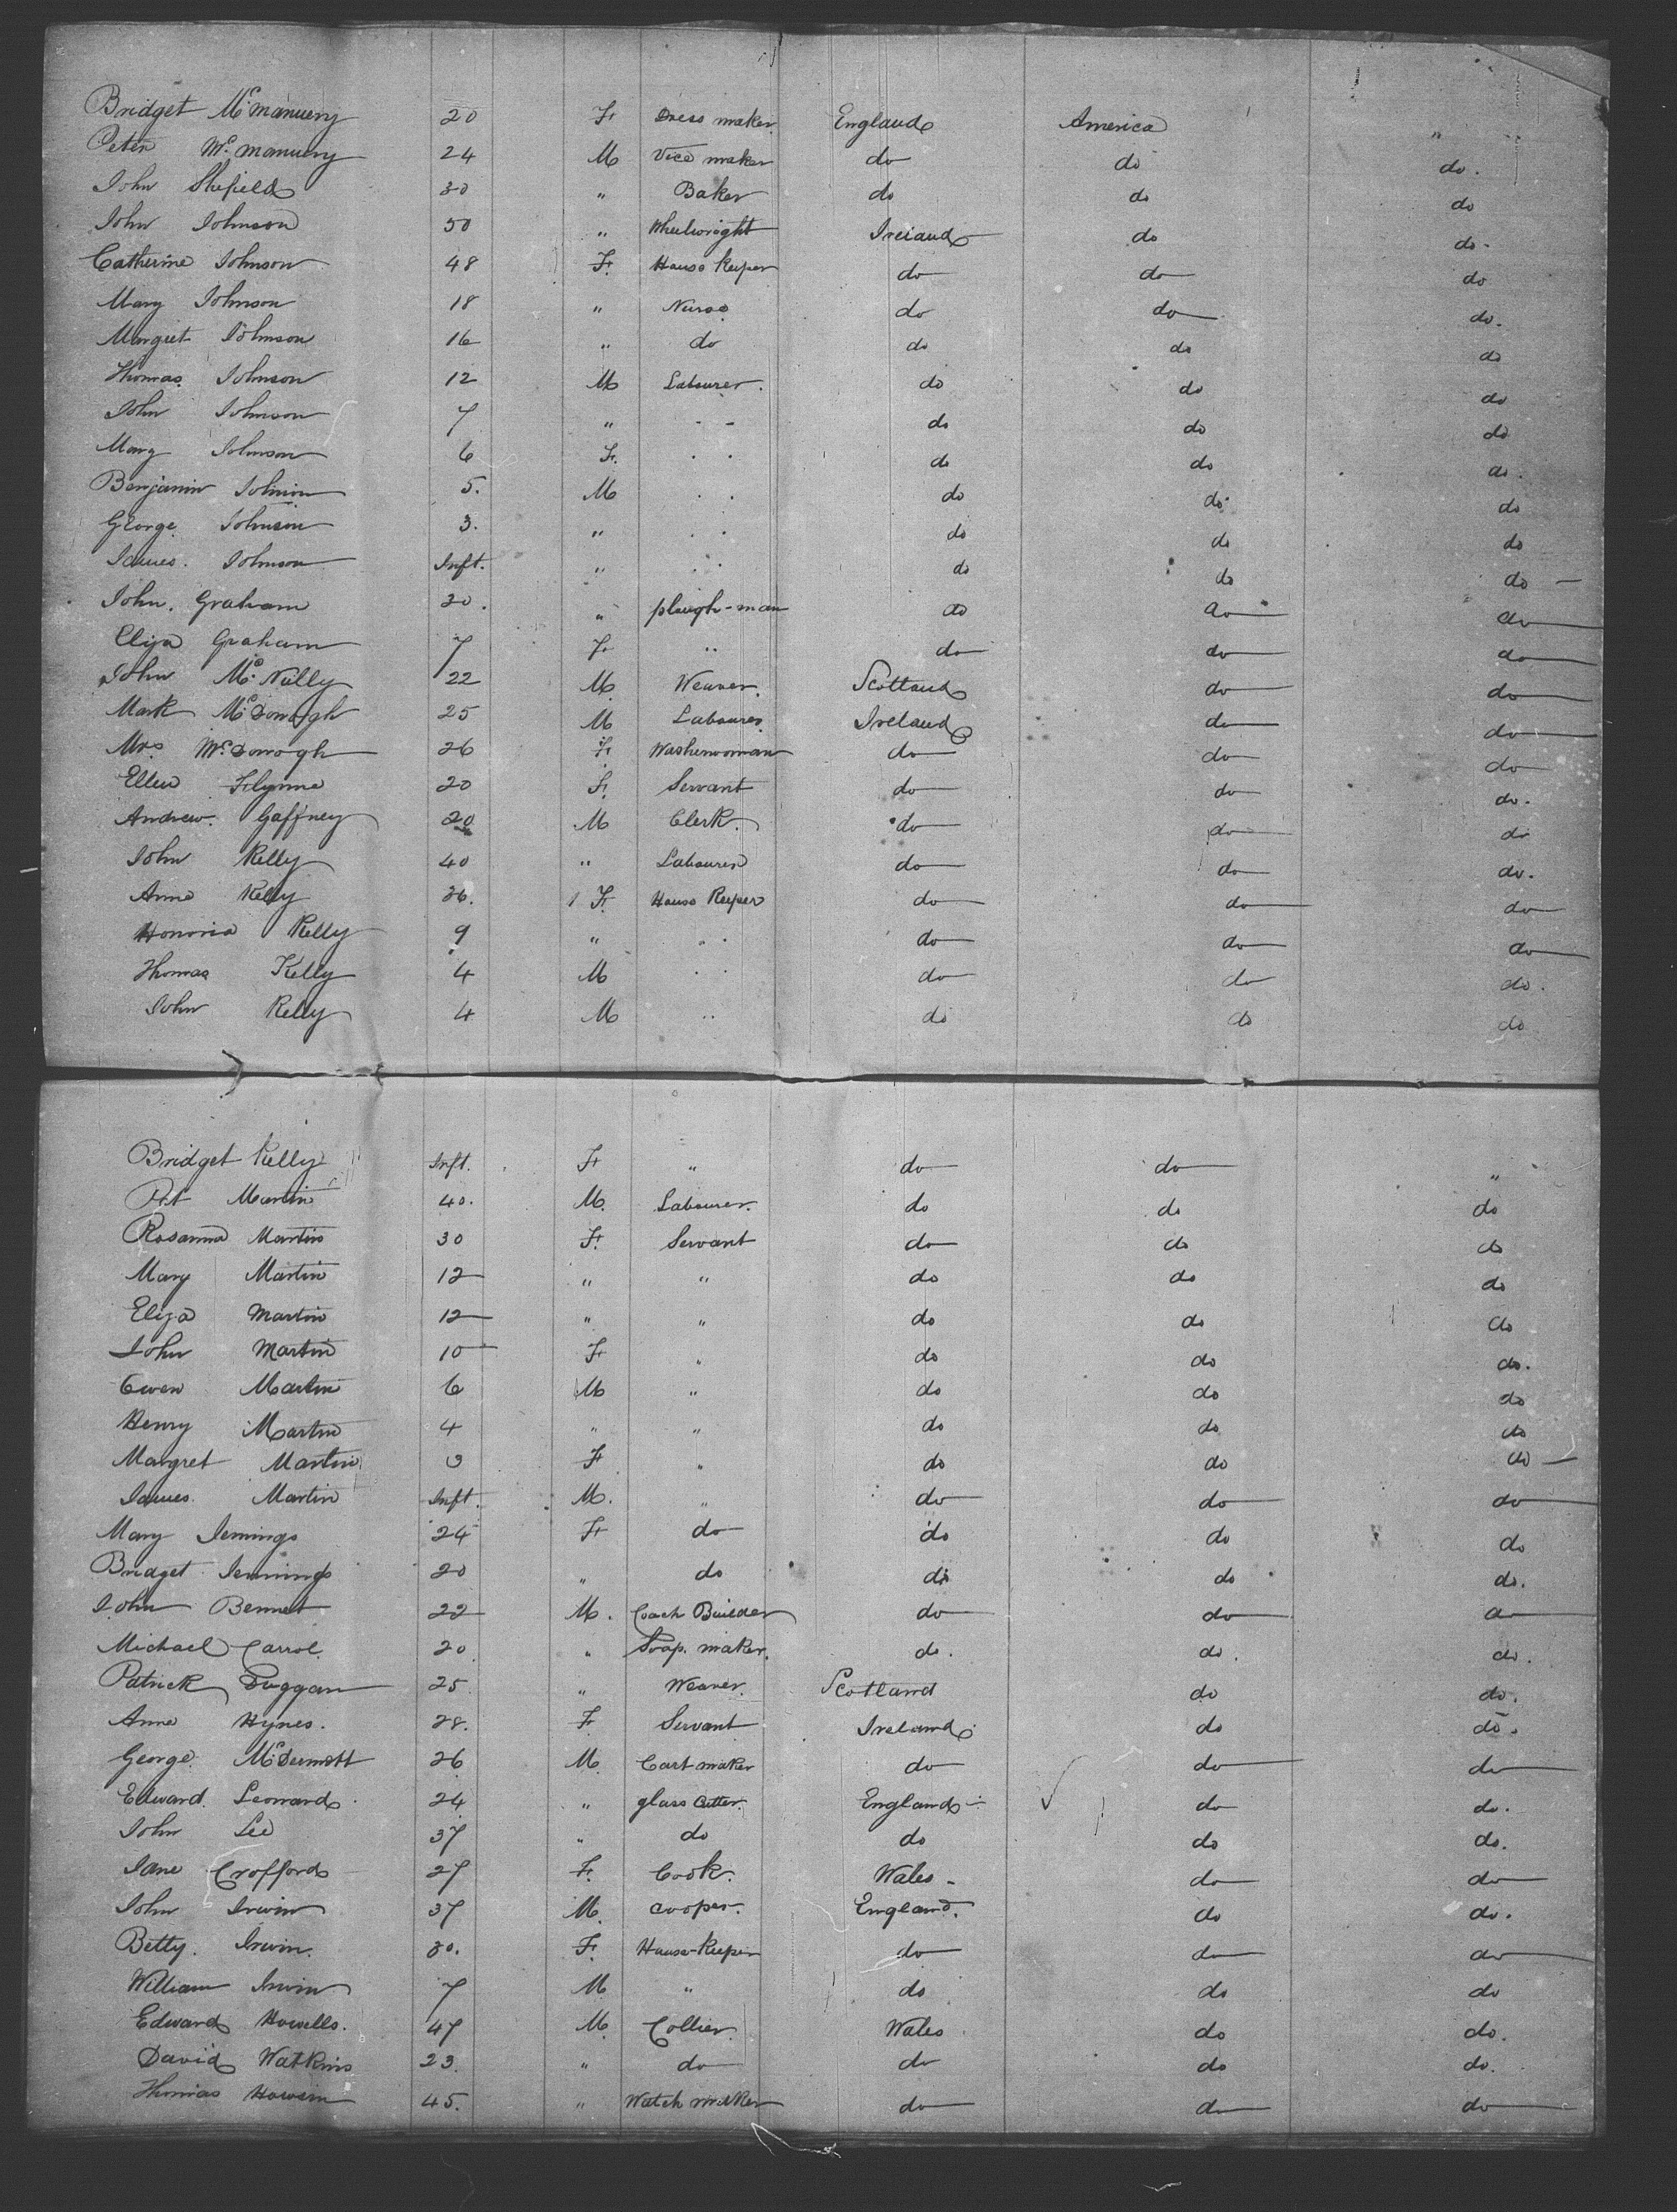 Bridget McManuery 20 F. Dress maker England America "
Peter McManuery 24 M Vice maker do do do.
John Shefield 30 " Baker do do do
John Johnson 50 " Wheelwright Ireland do do.
Catherine Johnson 48 F. House Keeper do do do
Mary Johnson 18 " Nurse do do do.
Margret Johnson 16 " do do do do
Thomas Johnson 12 M Labourer. do do do
John Johnson 7 " - - do do do
Mary Johnson 6 F. . . do do do.
Benjamin Johnson 5. M . . do do do
George Johnson 3. " . . do do do
James. Johnson Inft. " . . do do do
John. Graham 20. " plough-man do do do
Eliza Graham 7 F " do do do
John McNully 22 M. Weaver. Scotland do do
Mark McDonogh 25 M Labourer Ireland do do
Mrs McDonogh 26 F. Washerwoman do do do
Ellen Flynne 20 F. Servant do do do.
Andrew. Gaffney 20 M Clerk. do do do
John Kelly 40 " Labourer do do do.
Anne Kelly 36. F. House Keeper do do do
Honoria Kelly 9 " " do do do
Thomas Kelly 4 M . . do do do.
John Kelly 4 M " do do do
Bridget Kelly Inft. F " do do "
Pat Martin 40. M. Labourer. do do do
Rosanna Martin 30 F. Servant do do do
Mary Martin 12 " " do do do
Eliza Martin 12 " " do do do
John Martin 10 F " do do do.
Owen Martin 6 M " do do do
Henry Martin 4 " " do do do
Margret Martin 3 F " do do do
James. Martin Inft. M. " do do do
Mary Jennings 24 F do do do do
Bridget Jennings 20 " do do do do.
John Bennet 22 M. Coach Builder do do do
Michael Carrol. 20 " Soap. maker. do. do. do.
Patrick Duggan 25 " Weaver. Scotland do do.
Anne Hynes. 28. F Servant Ireland. do do.
George. McDermott 26 M. Cart maker do do do
Edward. Leonard. 24 " glass Cutter. England do do.
John Lee 37 " do do do do.
Jane Crofford 27 F. Cook. Wales do do
John Irwin 37 M. Cooper. England. do do.
Betty. Irwin. 30. F. House-Keeper do do do
William Irwin 7 M " do do do
Edward Howells. 47 M. Collier. Wales do do.
David Watkins 23. " do do do do.
Thomas 45. " Watch maker do do do